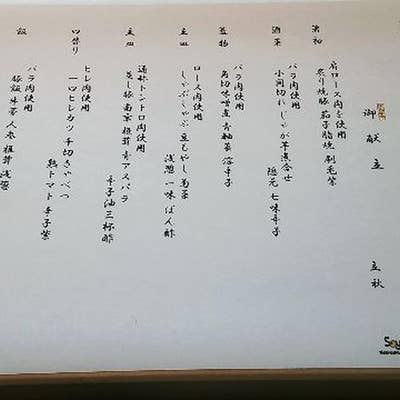 御献立 立秋
第初
肩ロース肉を使用
炙り焼豚 茄子脂焼 刷毛葉
酒菜
バラ肉使用
小間切れじゃが芋煮合せ
隠元 七味辛子
蓋物
バラ肉使用
角切味噌煮 青軸菜 溶辛子
主皿
ロース肉使用
しゃぶしゃぶ 豆もやし 菊菜
浅葱 一味 ぽん酢
主皿
通称トントロ肉使用
蒸し豚 南京 椎茸 青アスパラ
辛子油 三杯酢
口替り
ヒレ肉使用
一口ヒレカツ 千切きゃべつ
熟トマト 辛子
飯
バラ肉使用
豚飯 牛蒡 人参 椎茸 浅葱